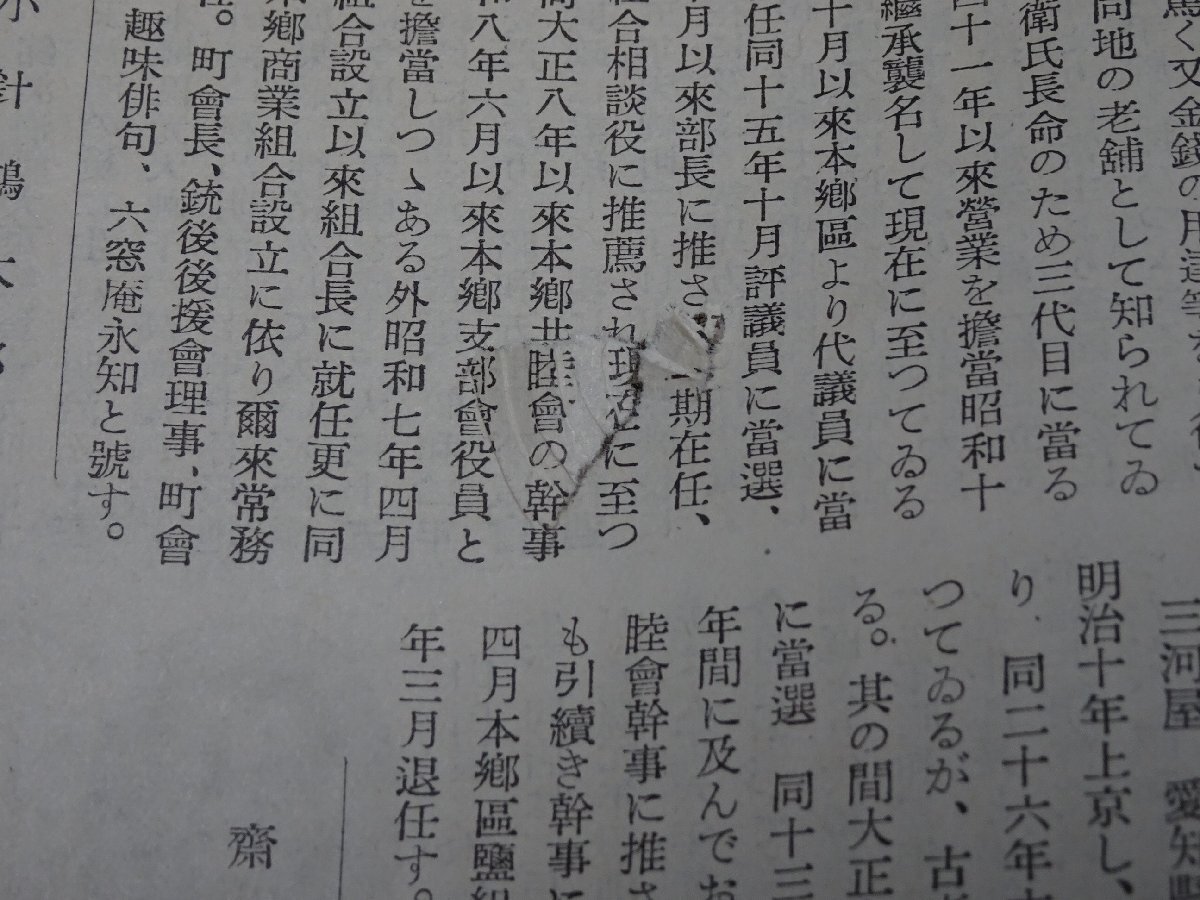 同地の老舗として知られてゐ
衛氏長命のため三代目に當る
四十一年以來營業を擔當昭和十
繼承襲名して現在に至つてゐる
十月以來本鄕區より代議員に當
任同十五年十月評議員に當選、
月以來部長に推さ 期在任、
合相談役に推薦され現在に至つ
大正八年以來本鄕共睦會の幹事
和八年六月以來本鄕支部會役員と
を擔當しつゝある外昭和七年四月
組合設立以來組合長に就任更に同
鄕商業組合設立に依り爾來常務
。町會長、銃後後援會理事、町會
趣味俳句、六窓庵永知と號す。
三河屋 愛知縣
明治十年上京し、
り、同二十六年
つてゐるが、古
る。其の間大正
に當選 同十三
年間に及んでお
睦會幹事に推さ
も引續き幹事に
四月本鄕區鹽組
年三月退任す。
齋